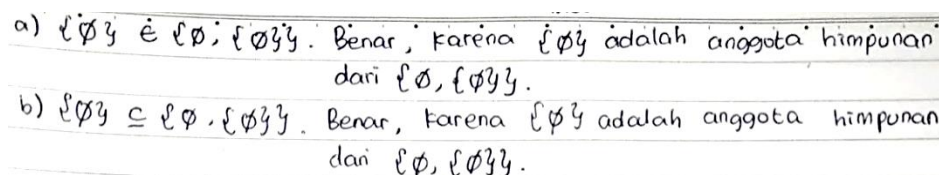 a) {∅} ∈ {∅, {∅}}. Benar, karena {∅} adalah anggota himpunan
dari {∅, {∅}}.
b) {∅} ⊆ {∅, {∅}}. Benar, karena {∅} adalah anggota himpunan
dari {∅, {∅}}.